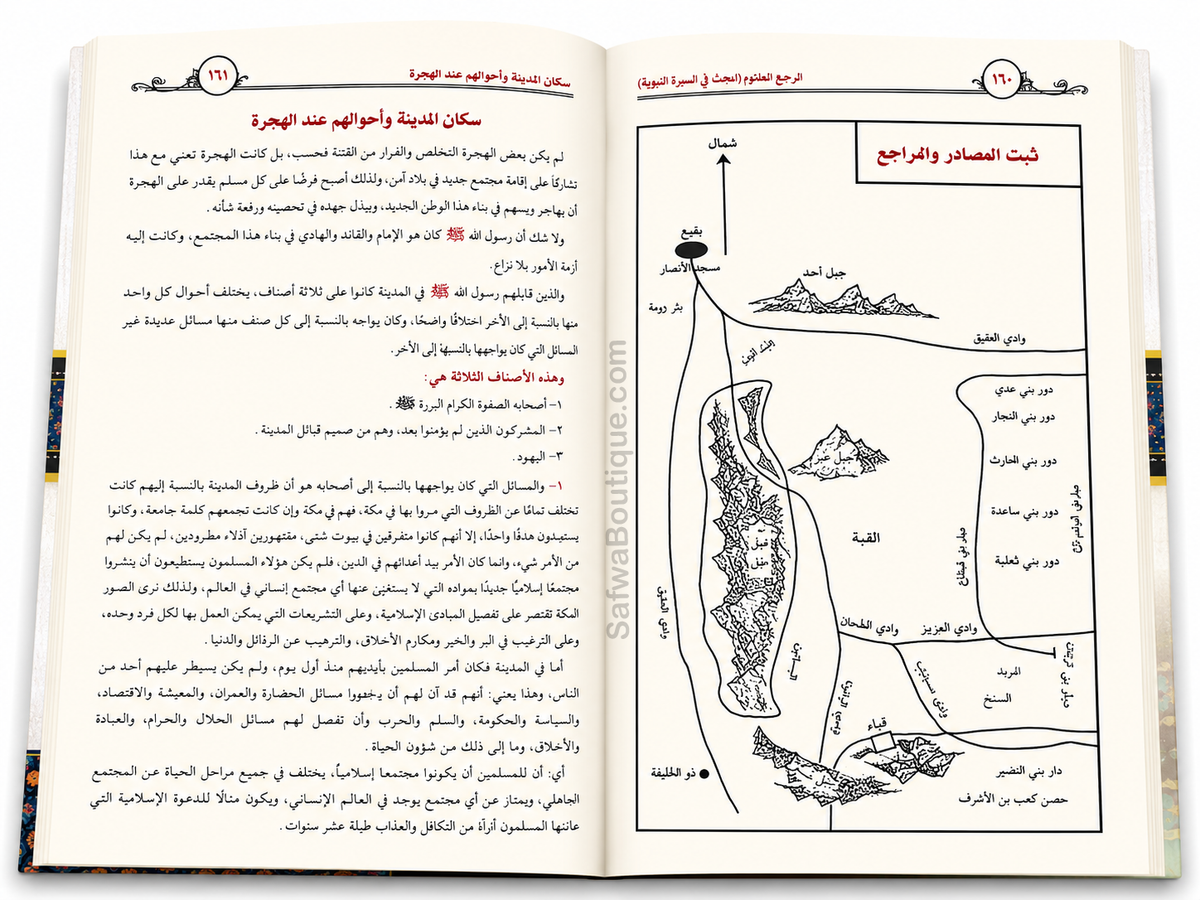 ١٦٠
الرجع العلتوم (المجث في السيرة النبوية)
ثبت المصادر والمراجع
شمال
بقيع
مسجد الأنصار
جبل أحد
بئر رومة
وادي العقيق
دور بني عدي
دور بني النجار
جبل عير
دور بني الحارث
دور بني ساعدة
القبة
دور بني ثعلبة
وادي العقيق
وادي الطحان
وادي العزيز
المربد
السنخ
قباء
ذو الخليفة
دار بني النضير
حصن كعب بن الأشرف
١٦١
سكان المدينة وأحوالهم عند الهجرة
سكان المدينة وأحوالهم عند الهجرة
لم يكن بعض الهجرة التخلص والفرار من القتنة فحسب، بل كانت الهجرة تعني مع هذا
تشاركًا على إقامة مجتمع جديد في بلاد آمن، ولذلك أصبح فرضًا على كل مسلم يقدر على الهجرة
أن يهاجر ويسهم في بناء هذا الوطن الجديد، ويبذل جهده في تحصينه ورفعة شأنه .
ولا شك أن رسول الله ﷺ كان هو الإمام والقائد والهادي في بناء هذا المجتمع، وكانت إليه
أزمة الأمور بلا نزاع.
والذين قابلهم رسول الله ﷺ في المدينة كانوا على ثلاثة أصناف، يختلف أحوال كل واحد
منها بالنسبة إلى الأخر اختلافًا واضحًا، وكان يواجه بالنسبة إلى كل صنف منها مسائل عديدة غير
المسائل التي كان يواجهها بالنسبة إلى الأخر.
وهذه الأصناف الثلاثة هي:
١- أصحابه الصفوة الكرام البررة .
٢- المشركون الذين لم يؤمنوا بعد، وهم من صميم قبائل المدينة .
٣- اليهود.
١- والمسائل التي كان يواجهها بالنسبة إلى أصحابه هو أن ظروف المدينة بالنسبة إليهم كانت
تختلف تمامًا عن الظروف التي مروا بها في مكة، فهم في مكة وإن كانت تجمعهم كلمة جامعة، وكانوا
يستبدون هدفًا واحدًا، إلا أنهم كانوا متفرقين في بيوت شتى، مقتهورين آذلاء مطرودين، لم يكن لهم
من الأمر شيء، وانما كان الأمر بيد أعدائهم في الدين، فلم يكن هؤلاء المسلمون يستطيعون أن ينشروا
مجتمعًا إسلاميًا جديدًا بمواده التي لا يستغين عنها أي مجتمع إنساني في العالم، ولذلك نرى الصور
المكة تقتصر على تفصيل المبادئ الإسلامية، وعلى التشريعات التي يمكن العمل بها لكل فرد وحده،
وعلى الترغيب في البر والخير ومكارم الأخلاق، والترهيب عن الرذائل والدنيا .
أما في المدينة فكان أمر المسلمين بأيديهم منذ أول يوم، ولم يكن يسيطر عليهم أحد من
الناس، وهذا يعني: أنهم قد آن لهم أن يجفهوا مسائل الحضارة والعمران، والمعيشة والاقتصاد،
والسياسة والحكومة، والسلم والحرب وأن تفصل لهم مسائل الحلال والحرام، والعبادة
والأخلاق، وما إلى ذلك من شؤون الحياة .
أي: أن للمسلمين أن يكونوا مجتمعا إسلامياً، يختلف في جميع مراحل الحياة عن المجتمع
الجاهلي، ويمتاز عن أي مجتمع يوجد في العالم الإنساني، ويكون منالًا للدعوة الإسلامية التي
عاننها المسلمون أنرأة من التكافل والعذاب طيلة عشر سنوات .
SafwaBoutique.com